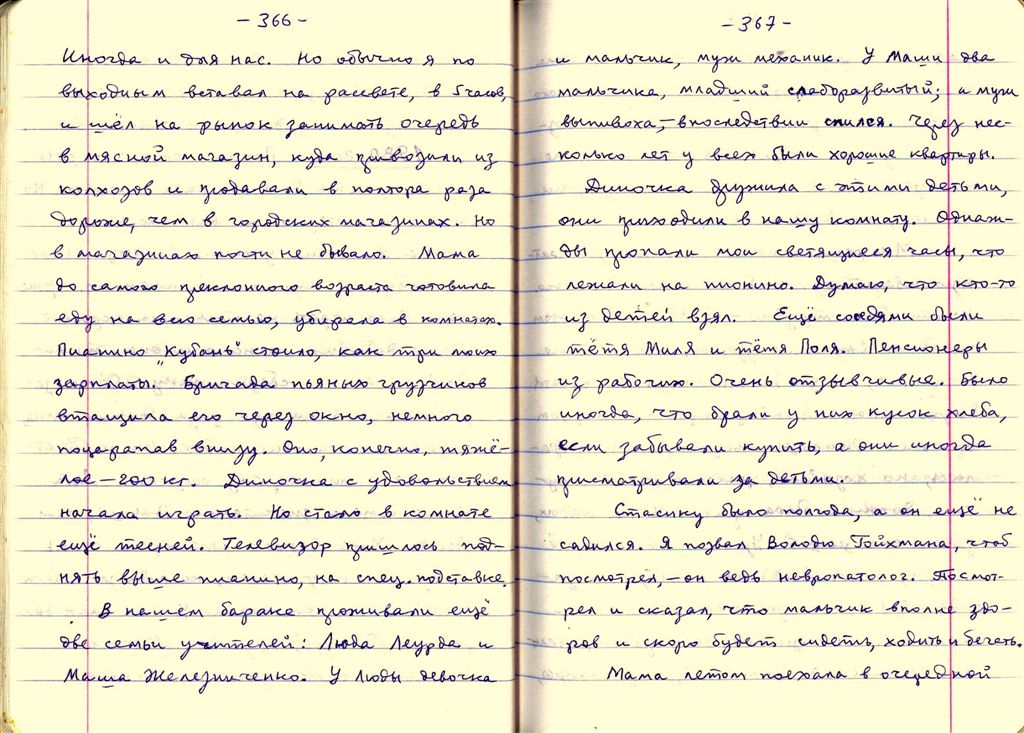 - 366 -
Иногда и для нас. Но обычно я по
выходным вставал на рассвете, в 5 часов,
и шёл на рынок занимать очередь
в мясной магазин, куда привозили из
колхозов и продавали в полтора раза
дороже, чем в городских магазинах. Но
в магазинах почти не бывало. Мама
до самого преклонного возраста готовила
еду на всю семью, убирала в комнатах.
Пианино "Кубань" стоило, как три моих
зарплаты. Бригада пьяных грузчиков
втащила его через окно, немного
поцарапав внизу. Оно, конечно, тяжё-
лое - 200 кг. Диночка с удовольствием
начала играть. Но стало в комнате
ещё тесней. Телевизор пришлось под-
нять выше пианино, на спец. подставке.
В нашем бараке проживали ещё
две семьи учителей: Люда Леурда и
Маша Железниченко. У Люды девочка
- 367 -
и мальчик, муж механик. У Маши два
мальчика, младший слаборазвитый; а муж
выпивоха, - впоследствии спился. Через нес-
колько лет у всех были хорошие квартиры.
Диночка дружила с этими детьми,
они приходили в нашу комнату. Однаж-
ды пропали мои светящиеся часы, что
лежали на пионино. Думаю, что кто-то
из детей взял. Ещё соседями были
тётя Миля и тётя Поля. Пенсионеры
из рабочих. Очень отзывчивые. Было
иногда, что брали у них кусок хлеба,
если забывали купить, а они иногда
присматривали за детьми.
Стасику было полгода, а он ещё не
садился. Я позвал Володю Гойхмана, чтоб
посмотрел, - он ведь невропатолог. Посмот-
рел и сказал, что мальчик вполне здо-
ров и скоро будет сидеть, ходить и бегать.
Мама летом поехала в очередной